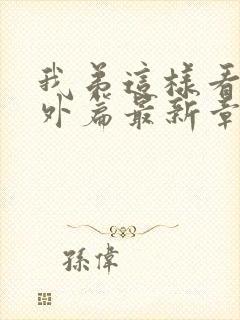 我弟這樣看
外篇最新章
孫偉